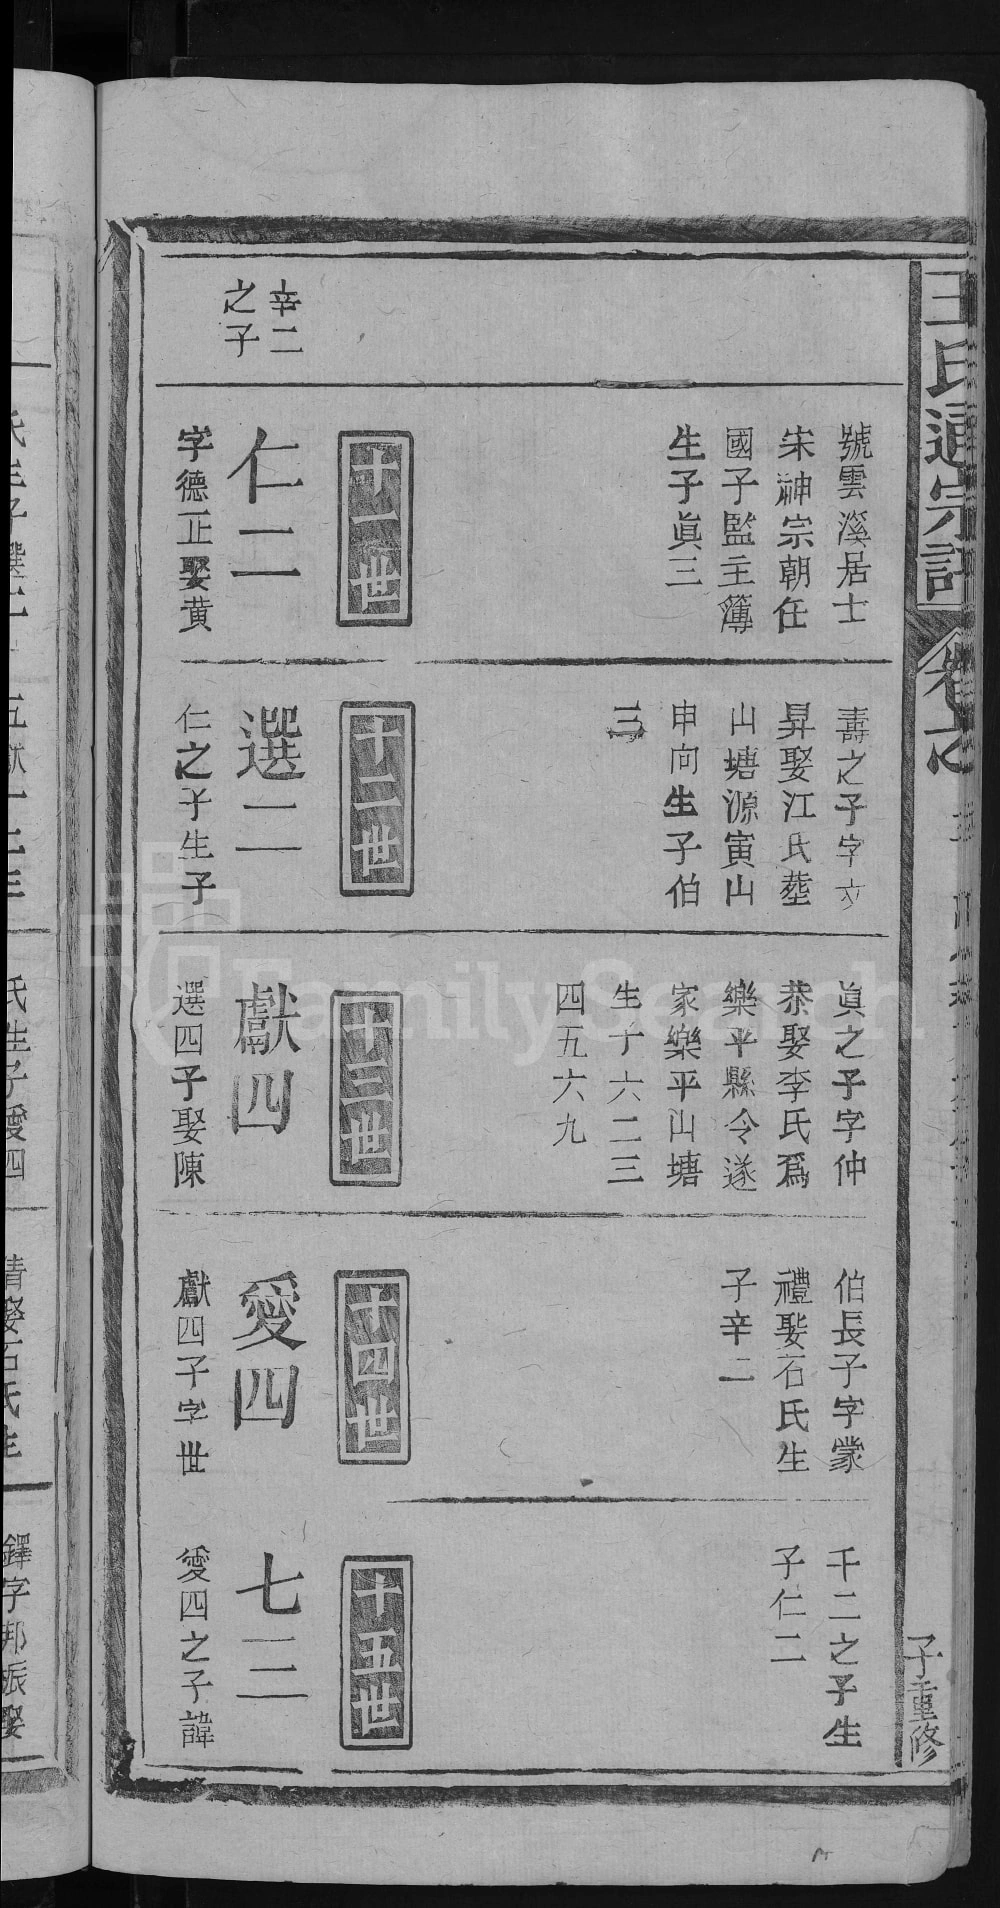 王氏通宗譜
卷之
子重修
號雲溪居士
宋神宗朝任
國子監主簿
生子眞三
壽之子字文
昇娶江氏塟
山塘源寅山
申向生子伯
三
眞之子字仲
恭娶李氏爲
樂平縣令遂
家樂平山塘
生子六二三
四五六九
伯長子字蒙
禮娶石氏生
子辛二
千二之子生
子仁二
辛二
之子
十一世
仁二
字德正娶黄
十二世
選二
仁之子生子
十三世
獻四
選四子娶陳
十四世
愛四
獻四子字世
十五世
七三
愛四之子諱
氏生子愛四
清娶石氏生
鐸字邦振娶
FamilySearch